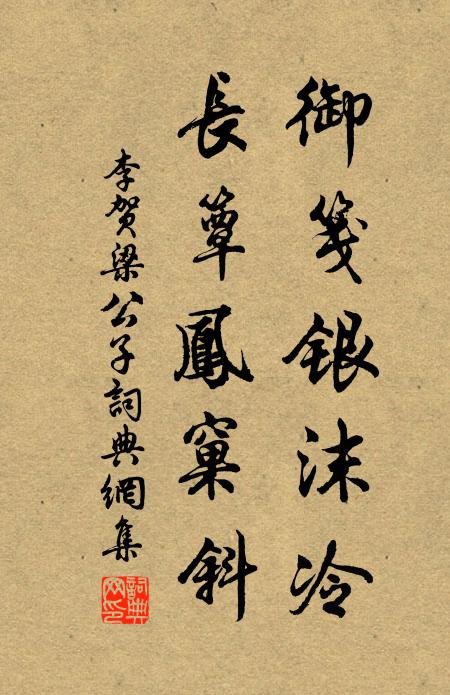 御箋銀沫冷
長簟鳳窠斜
李賀梁公子詞典網集
詞典网印